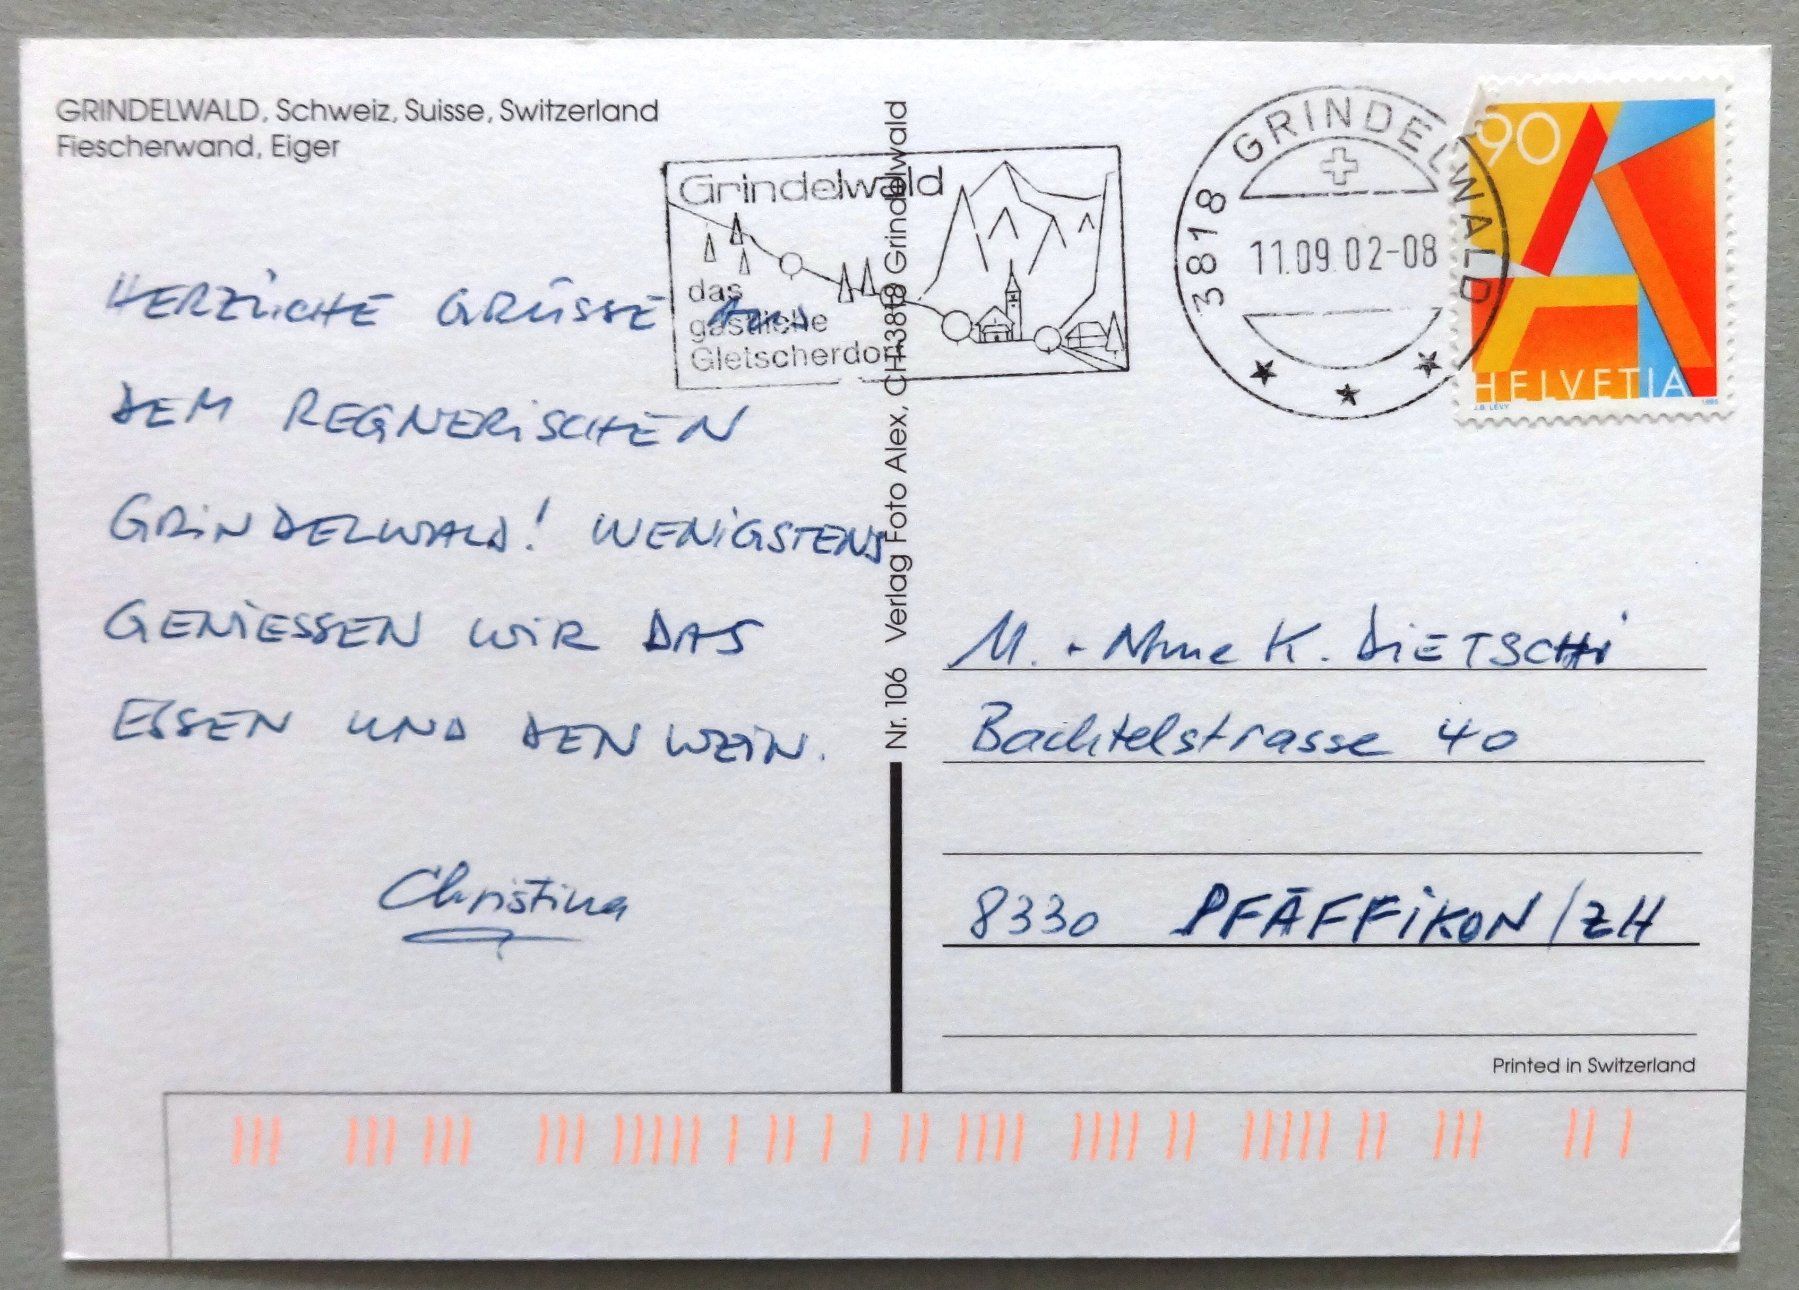 GRINDELWALD, Schweiz, Suisse, Switzerland
Fiescherwand, Eiger
Grindelwald
das
gastliche
Gletscherdorf
3818 GRINDELWALD
11.09.02-08
90
HELVETIA
J.B. LEVY
1995
HERZLICHE GRÜSSE AUS
DEM REGNERISCHEN
GRINDELWALD! WENIGSTENS
GENIESSEN WIR DAS
ESSEN UND DEN WEIN.
Christina
Nr. 106 Verlag Foto Alex, CH-3818 Grindelwald
M. + Mme K. DIETSCHI
Bachtelstrasse 40
8330 PFÄFFIKON/ZH
Printed in Switzerland